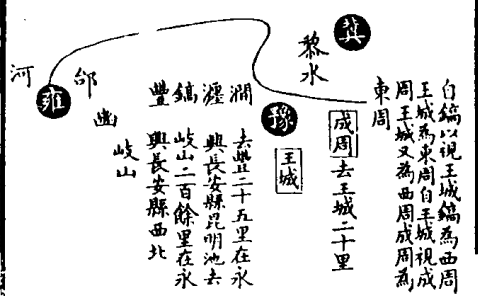 自鎬以視王城鎬為西周
王城為東周自王城視成
周王城又為西周成周為
東周
冀
黎水
成周去王城二十里
豫
王城
澗
去豐二十五里在永
瀍
興長安縣昆明池去
鎬
岐山二百餘里在永
豐
興長安縣西北
岐山
幽
邰
雍
河